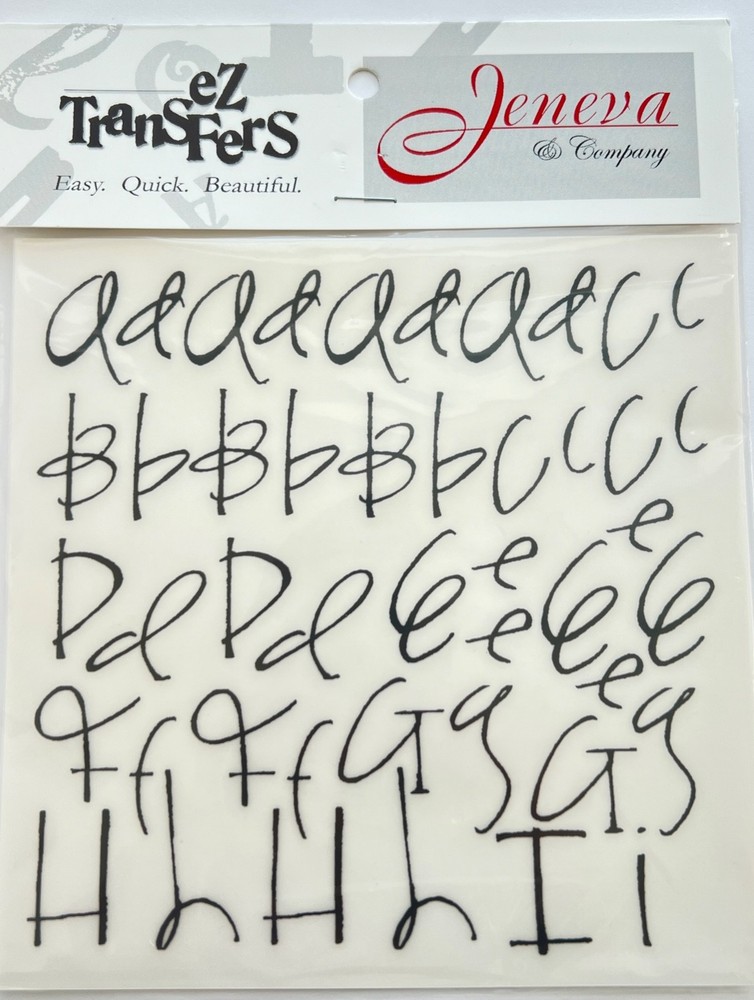 eZ
TranSFerS
Easy. Quick. Beautiful.
Jeneva
& Company
A a A a A a A a C c
B b B b B b C c C c
D d D d E e e E e E
F f F f G g G e g
H h H h I i